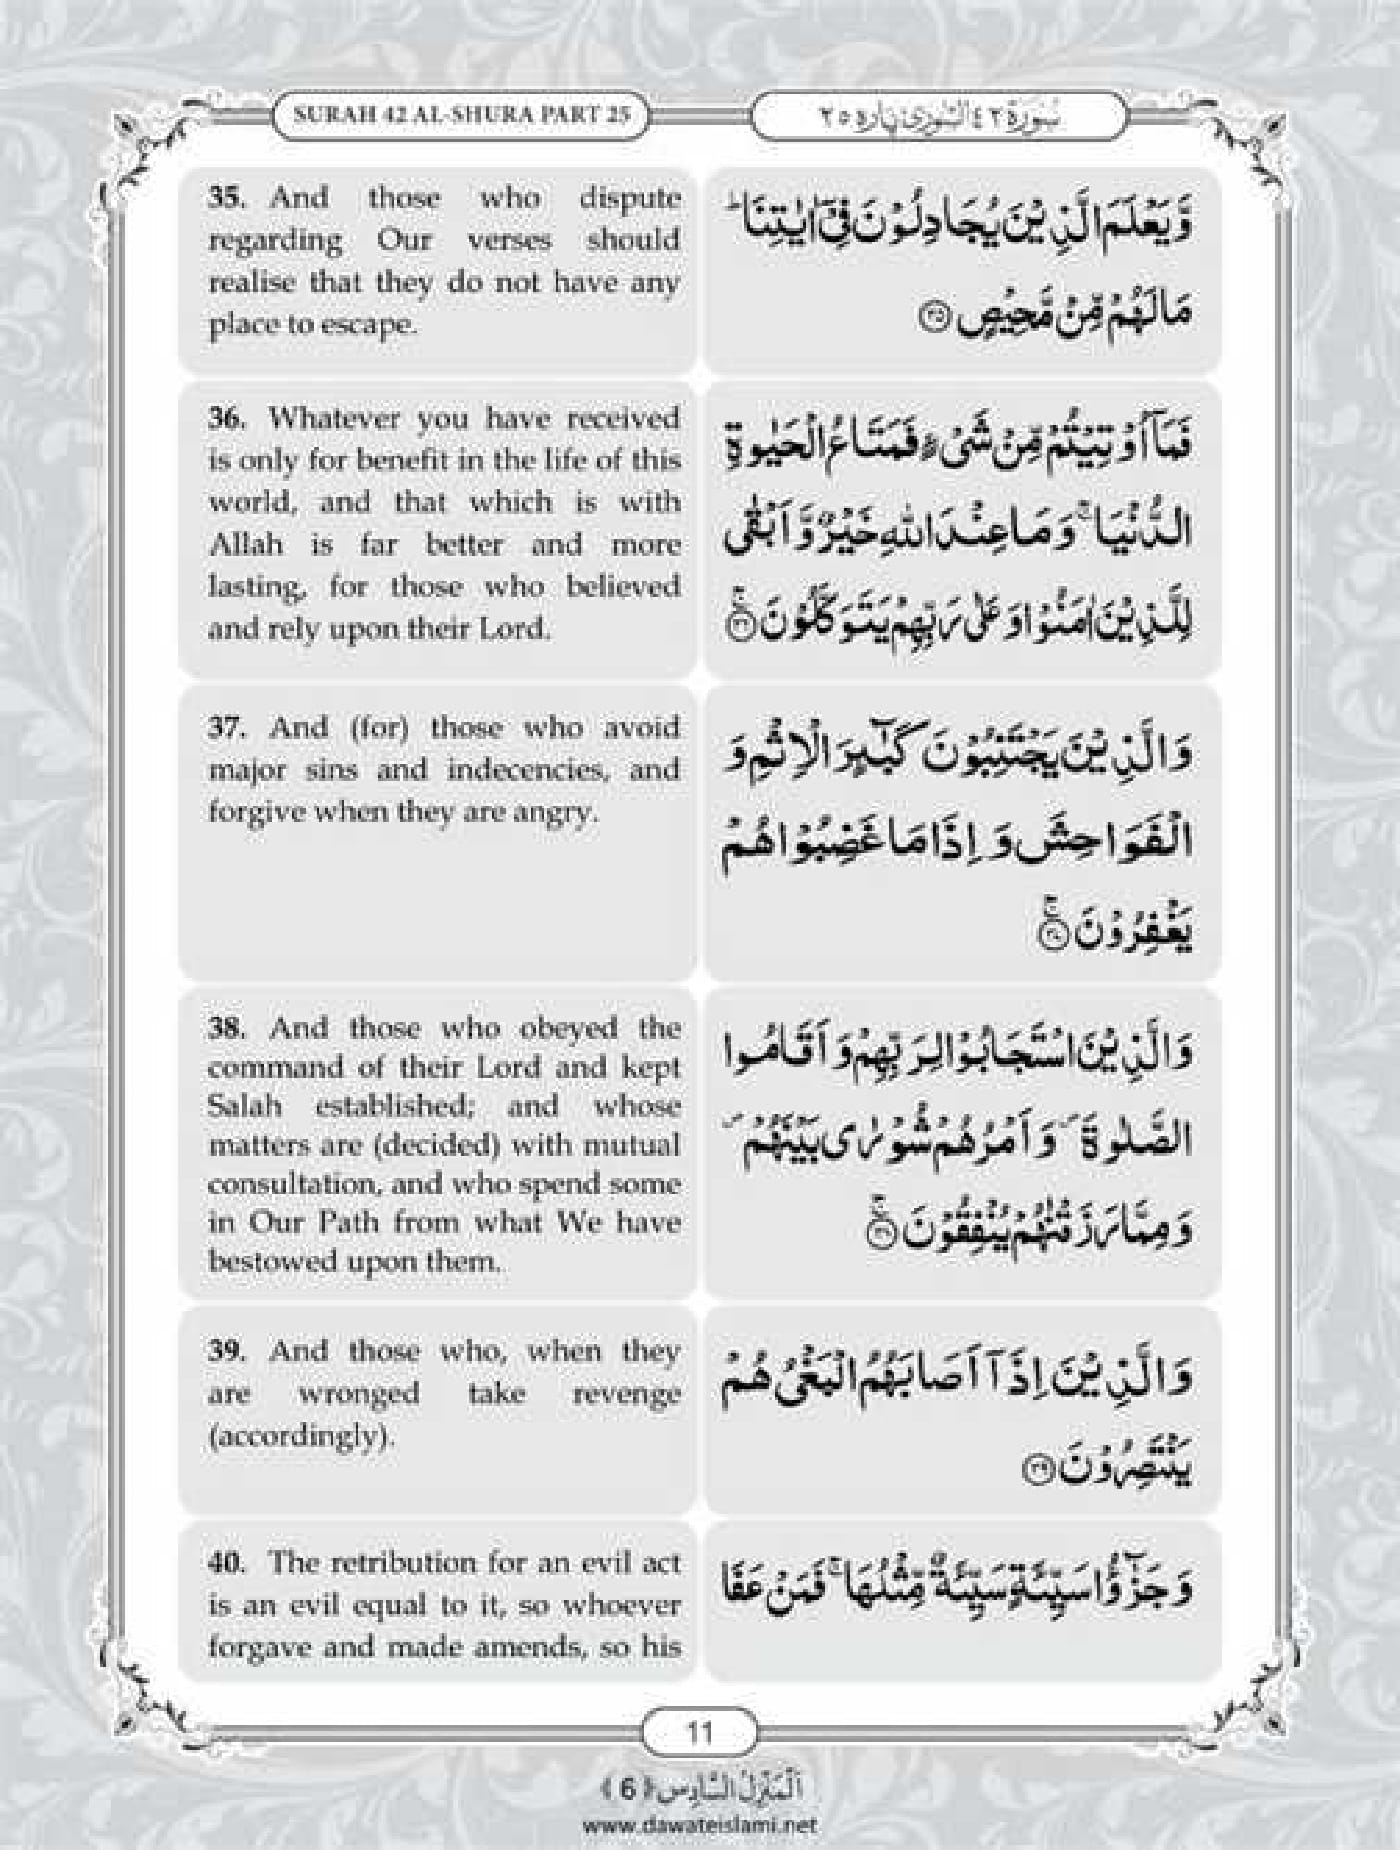 SURAH 42 AL-SHURA PART 25
سُوْرَةُ ٤٢ الشُّوْرٰى پارہ ٢٥
35. And those who dispute
regarding Our verses should
realise that they do not have any
place to escape.
وَّ یَعْلَمَ الَّذِیْنَ یُجَادِلُوْنَ فِیْۤ اٰیٰتِنَاؕ
مَا لَهُمْ مِّنْ مَّحِیْصٍ ﴿۳۵﴾
36. Whatever you have received
is only for benefit in the life of this
world, and that which is with
Allah is far better and more
lasting, for those who believed
and rely upon their Lord.
فَمَاۤ اُوْتِیْتُمْ مِّنْ شَیْءٍ فَمَتَاعُ الْحَیٰوةِ
الدُّنْیَاۚ وَ مَا عِنْدَ اللهِ خَیْرٌ وَّ اَبْقٰى
لِلَّذِیْنَ اٰمَنُوْا وَ عَلٰى رَبِّهِمْ یَتَوَكَّلُوْنَۚ ﴿۳۶﴾
37. And (for) those who avoid
major sins and indecencies, and
forgive when they are angry.
وَ الَّذِیْنَ یَجْتَنِبُوْنَ كَبٰٓىٕرَ الْاِثْمِ وَ
الْفَوَاحِشَ وَ اِذَا مَا غَضِبُوْا هُمْ
یَغْفِرُوْنَۚ ﴿۳۷﴾
38. And those who obeyed the
command of their Lord and kept
Salah established; and whose
matters are (decided) with mutual
consultation, and who spend some
in Our Path from what We have
bestowed upon them.
وَ الَّذِیْنَ اسْتَجَابُوْا لِرَبِّهِمْ وَ اَقَامُوا
الصَّلٰوةَ۪ وَ اَمْرُهُمْ شُوْرٰى بَیْنَهُمْ۪
وَ مِمَّا رَزَقْنٰهُمْ یُنْفِقُوْنَۚ ﴿۳۸﴾
39. And those who, when they
are wronged take revenge
(accordingly).
وَ الَّذِیْنَ اِذَاۤ اَصَابَهُمُ الْبَغْیُ هُمْ
یَنْتَصِرُوْنَ ﴿۳۹﴾
40. The retribution for an evil act
is an evil equal to it, so whoever
forgave and made amends, so his
وَ جَزٰٓؤُا سَیِّئَةٍ سَیِّئَةٌ مِّثْلُهَاۚ فَمَنْ عَفَا
11
اَلْمَنْزِلُ السَّادِس ﴿6﴾
www.dawateislami.net